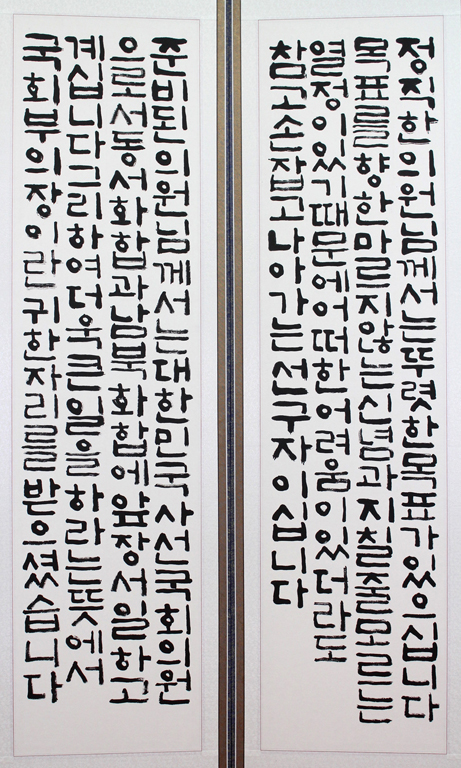 정직한의원님께서는뚜렷한목표가있으십니다
목표를향한마르지않는신념과지칠줄모르는
열정이있기때문에어떠한어려움이있더라도
참고손잡고나아가는선구자이십니다
준비된의원님께서는대한민국사선국회의원
으로서동서화합과남북화합에앞장서일하고
계십니다그리하여더욱큰일을하라는뜻에서
국회부의장이란귀한자리를받으셨습니다